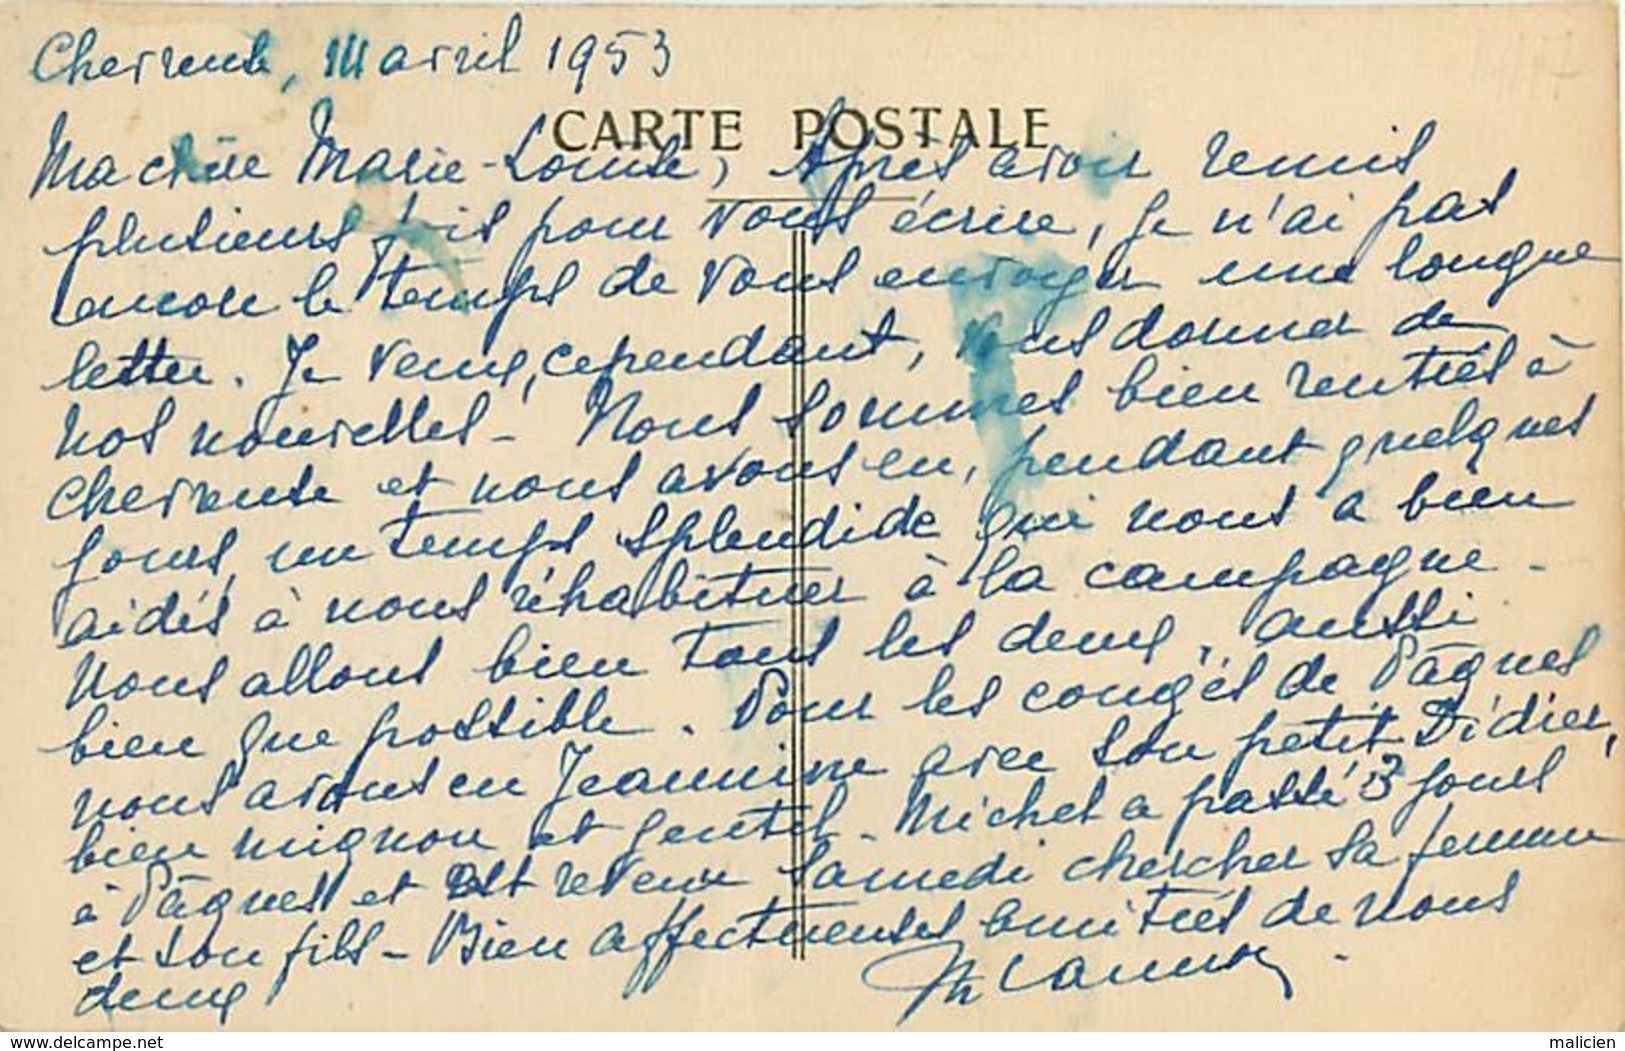 Cherveux, 14 avril 1953
CARTE POSTALE
Ma chère Marie-Louise, Après avoir remis
plusieurs fois pour vous écrire, je n'ai pas
encore le temps de vous envoyer une longue
lettre. Je veux, cependant, vous donner de
nos nouvelles - Nous sommes bien rentrés à
et nous avons eu, pendant quelques
jours, un temps splendide qui nous a bien
aidés à nous réhabituer à la campagne -
Nous allons bien tous les deux, aussi
bien que possible. Pour les congés de Pâques
nous avons eu Jeannine avec son petit Didier,
bien mignon et gentil - Michel a passé 3 jours
à Pâques et est revenu Samedi chercher sa femme
et son fils - Bien affectueuses amitiés de nous
deux
www.delcampe.net
malicien